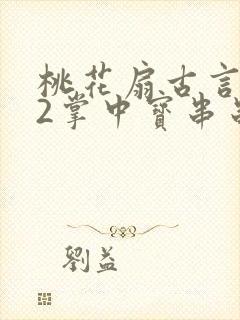 桃花扇古言
2掌中寶串
劉益